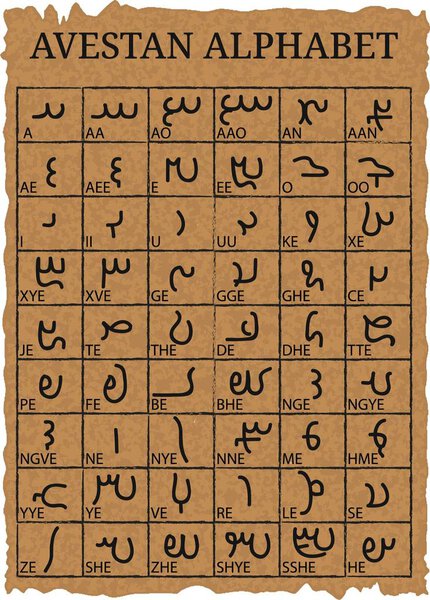 AVESTAN ALPHABET
𐬀 𐬁 𐬂 𐬃 𐬄 𐬅
A AA AO AAO AN AAN
𐬆 𐬇 𐬈 𐬉 𐬊 𐬋
AE AEE E EE O OO
𐬌 𐬍 𐬎 𐬏 𐬐 𐬑
I II U UU KE XE
𐬒 𐬓 𐬔 𐬕 𐬖 𐬗
XYE XVE GE GGE GHE CE
𐬘 𐬙 𐬚 𐬛 𐬜 𐬝
JE TE THE DE DHE TTE
𐬞 𐬟 𐬠 𐬡 𐬢 𐬣
PE FE BE BHE NGE NGYE
𐬤 𐬥 𐬦 𐬧 𐬨 𐬩
NGVE NE NYE NNE ME HME
𐬪 𐬫 𐬬 𐬭 𐬮 𐬯
YYE YE VE RE LE SE
𐬰 𐬱 𐬲 𐬳 𐬴 𐬵
ZE SHE ZHE SHYE SSHE HE